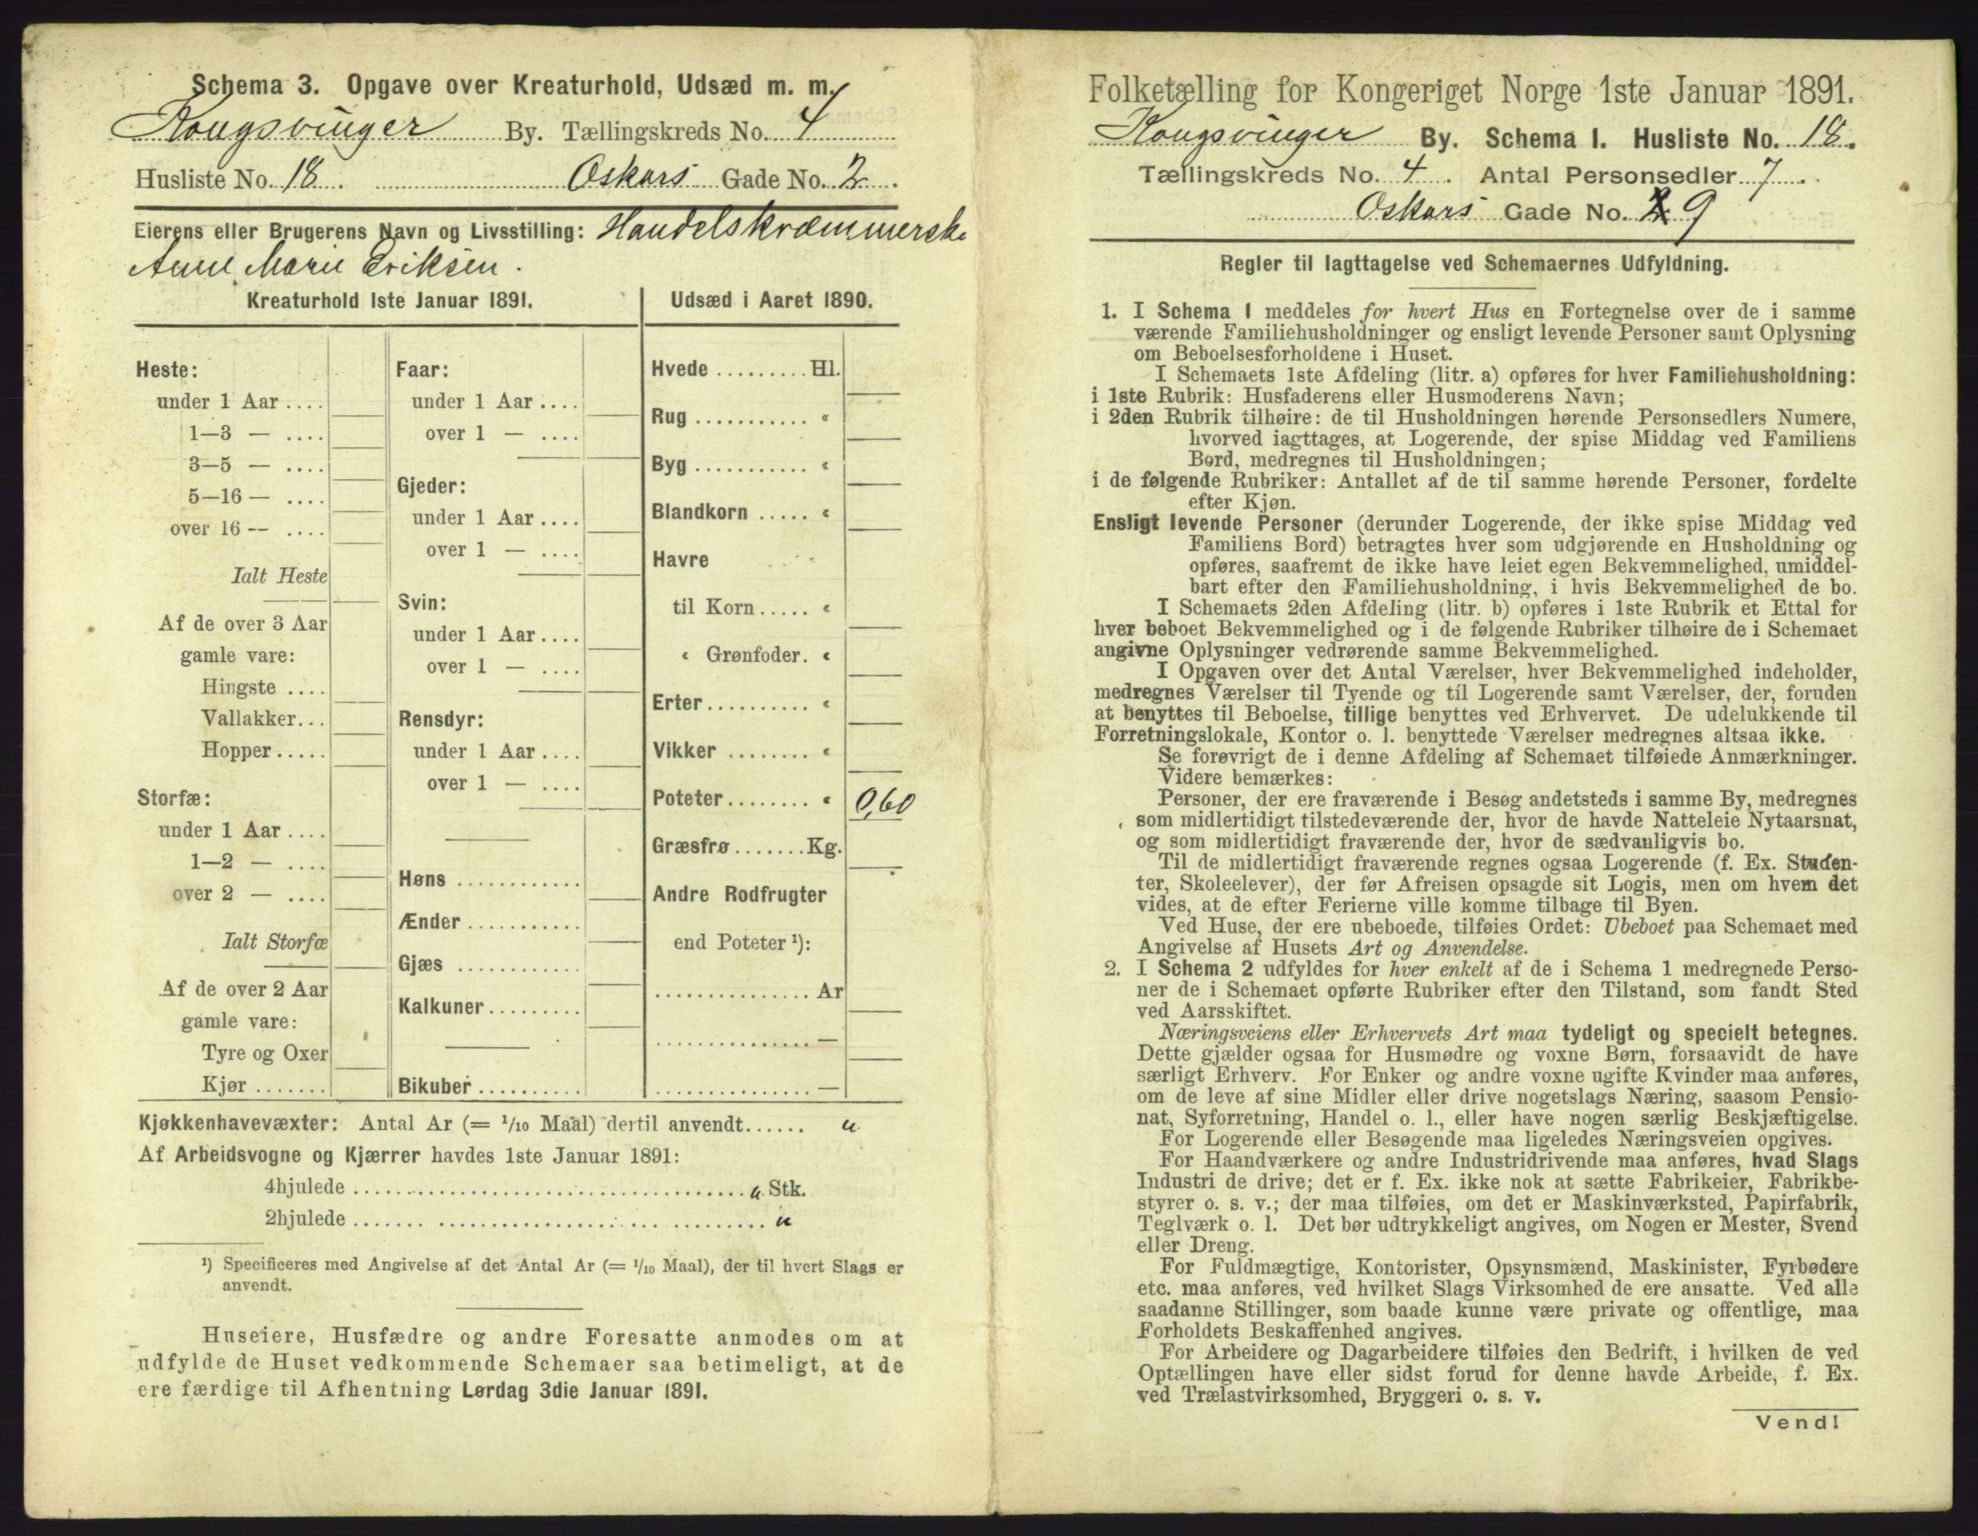 Schema 3. Opgave over Kreaturhold, Udsæd m. m.
Kongsvinger By. Tællingskreds No. 4
Husliste No. 18. Oskars Gade No. 2.
Eierens eller Brugerens Navn og Livsstilling: Handelskræmmerske
Anne Marie Eriksen.
Kreaturhold 1ste Januar 1891.
Heste:
under 1 Aar ....
1—3 — ....
3—5 — ....
5—16 — ....
over 16 — ....
Ialt Heste
Af de over 3 Aar
gamle vare:
Hingste ....
Vallakker...
Hopper.....
Storfæ:
under 1 Aar ....
1—2 — ....
over 2 — ....
Ialt Storfæ
Af de over 2 Aar
gamle vare:
Tyre og Oxer
Kjør .......
Faar:
under 1 Aar ....
over 1 — ....
Gjeder:
under 1 Aar ....
over 1 — ....
Svin:
under 1 Aar ....
over 1 — ....
Rensdyr:
under 1 Aar ....
over 1 — ....
Høns ............
Ænder...........
Gjæs ............
Kalkuner.........
Bikuber..........
Udsæd i Aaret 1890.
Hvede .........Hl.
Rug ........... «
Byg ........... «
Blandkorn ..... «
Havre
til Korn..... «
« Grønfoder. «
Erter.......... «
Vikker ........ «
Poteter........ « 0,60
Græsfrø .......Kg.
Andre Rodfrugter
end Poteter ¹):
............... Ar
............... —
............... —
Kjøkkenhavevæxter: Antal Ar (= 1/10 Maal) dertil anvendt...... "
Af Arbeidsvogne og Kjærrer havdes 1ste Januar 1891:
4hjulede .................................... " Stk.
2hjulede .................................... "
¹) Specificeres med Angivelse af det Antal Ar (= 1/10 Maal), der til hvert Slags er
anvendt.
Huseiere, Husfædre og andre Foresatte anmodes om at
udfylde de Huset vedkommende Schemaer saa betimeligt, at de
ere færdige til Afhentning Lørdag 3die Januar 1891.
Folketælling for Kongeriget Norge 1ste Januar 1891.
Kongsvinger By. Schema I. Husliste No. 18.
Tællingskreds No. 4. Antal Personsedler 7.
Oskars Gade No. 2 9
Regler til Iagttagelse ved Schemaernes Udfyldning.
1. I Schema 1 meddeles for hvert Hus en Fortegnelse over de i samme
værende Familiehusholdninger og ensligt levende Personer samt Oplysning
om Beboelsesforholdene i Huset.
I Schemaets 1ste Afdeling (litr. a) opføres for hver Familiehusholdning:
i 1ste Rubrik: Husfaderens eller Husmoderens Navn;
i 2den Rubrik tilhøire: de til Husholdningen hørende Personsedlers Numere,
hvorved iagttages, at Logerende, der spise Middag ved Familiens
Bord, medregnes til Husholdningen;
i de følgende Rubriker: Antallet af de til samme hørende Personer, fordelte
efter Kjøn.
Ensligt levende Personer (derunder Logerende, der ikke spise Middag ved
Familiens Bord) betragtes hver som udgjørende en Husholdning og
opføres, saafremt de ikke have leiet egen Bekvemmelighed, umiddel-
bart efter den Familiehusholdning, i hvis Bekvemmelighed de bo.
I Schemaets 2den Afdeling (litr. b) opføres i 1ste Rubrik et Ettal for
hver beboet Bekvemmelighed og i de følgende Rubriker tilhøire de i Schemaet
angivne Oplysninger vedrørende samme Bekvemmelighed.
I Opgaven over det Antal Værelser, hver Bekvemmelighed indeholder,
medregnes Værelser til Tyende og til Logerende samt Værelser, der, foruden
at benyttes til Beboelse, tillige benyttes ved Erhvervet. De udelukkende til
Forretningslokale, Kontor o. l. benyttede Værelser medregnes altsaa ikke.
Se forøvrigt de i denne Afdeling af Schemaet tilføiede Anmærkninger.
Videre bemærkes:
Personer, der ere fraværende i Besøg andetsteds i samme By, medregnes
som midlertidigt tilstedeværende der, hvor de havde Natteleie Nytaarsnat,
og som midlertidigt fraværende der, hvor de sædvanligvis bo.
Til de midlertidigt fraværende regnes ogsaa Logerende (f. Ex. Studen-
ter, Skoleelever), der før Afreisen opsagde sit Logis, men om hvem det
vides, at de efter Ferierne ville komme tilbage til Byen.
Ved Huse, der ere ubeboede, tilføies Ordet: Ubeboet paa Schemaet med
Angivelse af Husets Art og Anvendelse.
2. I Schema 2 udfyldes for hver enkelt af de i Schema 1 medregnede Perso-
ner de i Schemaet opførte Rubriker efter den Tilstand, som fandt Sted
ved Aarsskiftet.
Næringsveiens eller Erhvervets Art maa tydeligt og specielt betegnes.
Dette gjælder ogsaa for Husmødre og voxne Børn, forsaavidt de have
særligt Erhverv. For Enker og andre voxne ugifte Kvinder maa anføres,
om de leve af sine Midler eller drive nogetslags Næring, saasom Pensio-
nat, Syforretning, Handel o. l., eller have nogen særlig Beskjæftigelse.
For Logerende eller Besøgende maa ligeledes Næringsveien opgives.
For Haandværkere og andre Industridrivende maa anføres, hvad Slags
Industri de drive; det er f. Ex. ikke nok at sætte Fabrikeier, Fabrikbe-
styrer o. s. v.; der maa tilføies, om det er Maskinværksted, Papirfabrik,
Teglværk o. l. Det bør udtrykkeligt angives, om Nogen er Mester, Svend
eller Dreng.
For Fuldmægtige, Kontorister, Opsynsmænd, Maskinister, Fyrbødere
etc. maa anføres, ved hvilket Slags Virksomhed de ere ansatte. Ved alle
saadanne Stillinger, som baade kunne være private og offentlige, maa
Forholdets Beskaffenhed angives.
For Arbeidere og Dagarbeidere tilføies den Bedrift, i hvilken de ved
Optællingen have eller sidst forud for denne havde Arbeide, f. Ex.
ved Trælastvirksomhed, Bryggeri o. s. v.
Vend!